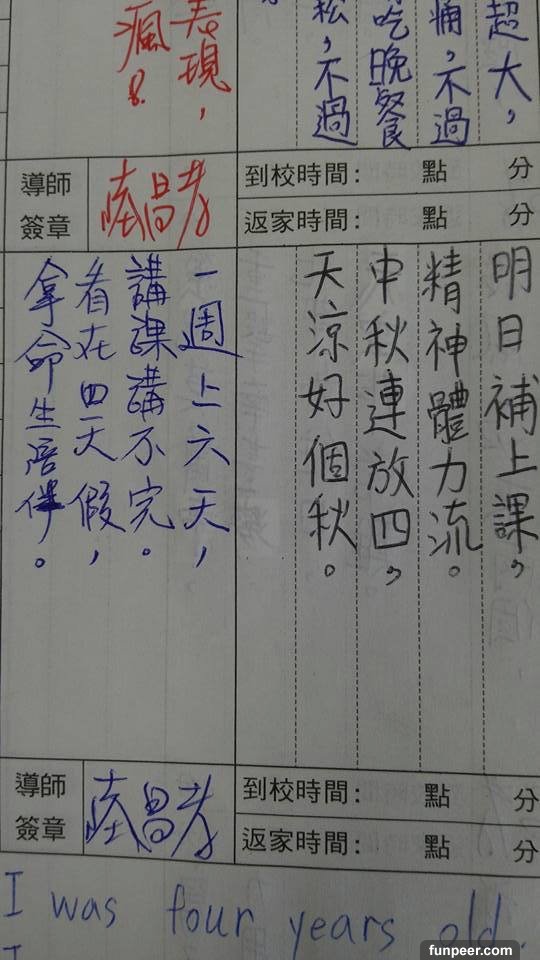 超大，
痛，不過
吃晚餐
，不過
表現，
瘋。
導師
簽章
到校時間： 點 分
返家時間： 點 分
明日補上課，
精神體力流。
中秋連放四，
天涼好個秋。
一週上六天，
講課講不完。
看在四天假，
拿命生陪伴。
導師
簽章
到校時間： 點 分
返家時間： 點 分
I was four years old.
funpeer.com